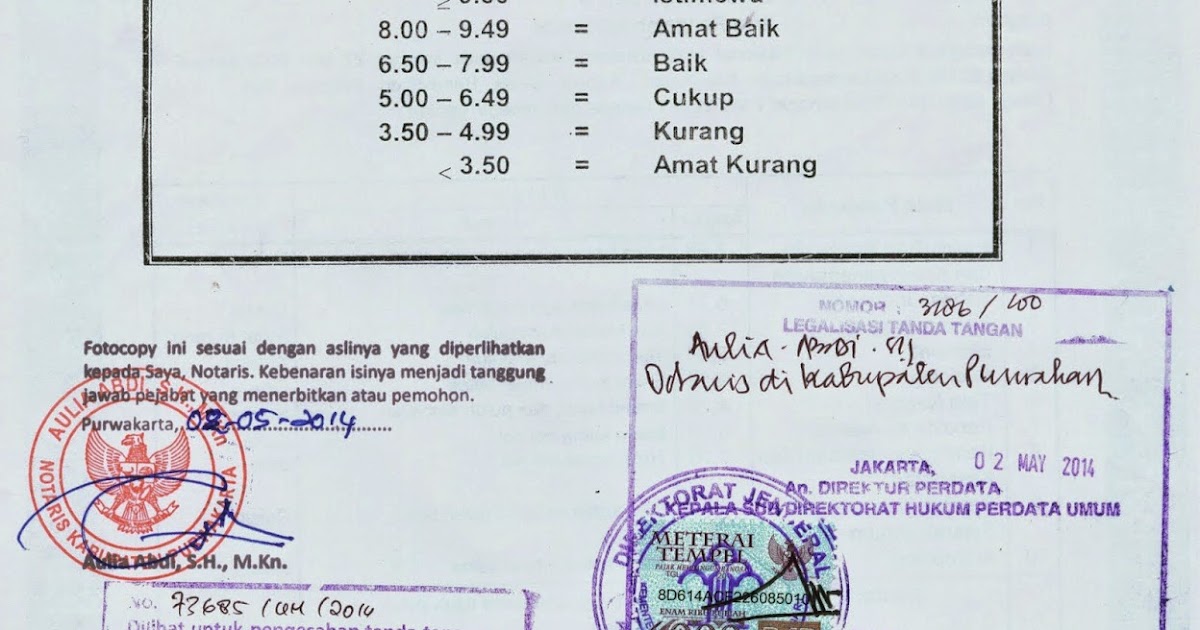 Istimewa
8.00 – 9.49 = Amat Baik
6.50 – 7.99 = Baik
5.00 – 6.49 = Cukup
3.50 – 4.99 = Kurang
< 3.50 = Amat Kurang
Fotocopy ini sesuai dengan aslinya yang diperlihatkan
kepada Saya, Notaris. Kebenaran isinya menjadi tanggung
jawab pejabat yang menerbitkan atau pemohon.
Purwakarta, 02-05-2014
AULIA ABDI, S.H., M.Kn
NOTARIS KABUPATEN PURWAKARTA
Aulia Abdi, S.H., M.Kn.
NO. 73685 /
Dilihat untuk pengesahan tanda
NOMOR : 3286 / 100
LEGALISASI TANDA TANGAN
Aulia Abdi SH
di Kabupaten
JAKARTA, 02 MAY 2014
An. DIREKTUR PERDATA
KEPALA SUB DIREKTORAT HUKUM PERDATA UMUM
DIREKTORAT JENDERAL
METERAI
TEMPEL
ENAM RIBU RUPIAH
6000 DJP